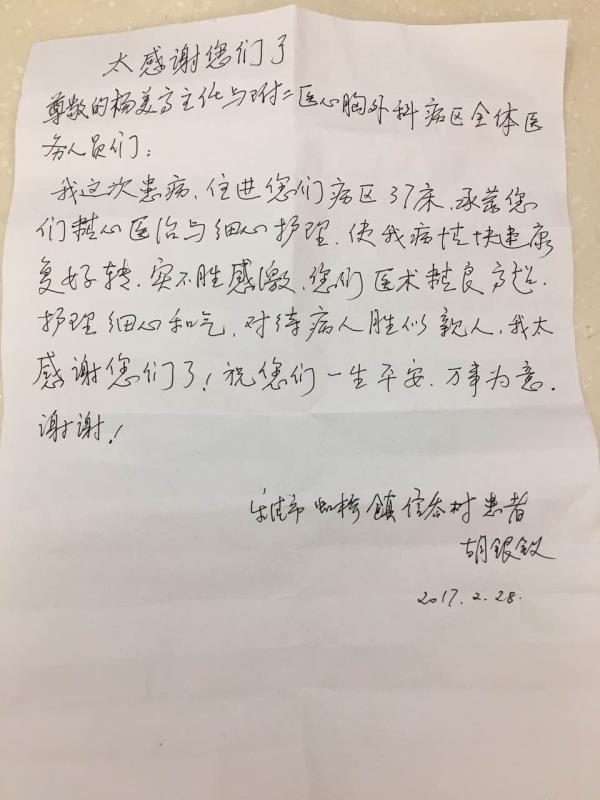 太感谢您们了
尊敬的杨美高主任与附二医心胸外科病区全体医
务人员们：
我这次患病、住进您们病区37床、承蒙您
们精心医治与细心护理、使我病情快速康
复好转、实不胜感激、您们医术精良高超、
护理细心和气、对待病人胜似亲人、我太
感谢您们了！祝您们一生平安、万事为意.
谢谢！
乐清市虹桥鎮信岙村患者
胡银钗
2017.2.28.